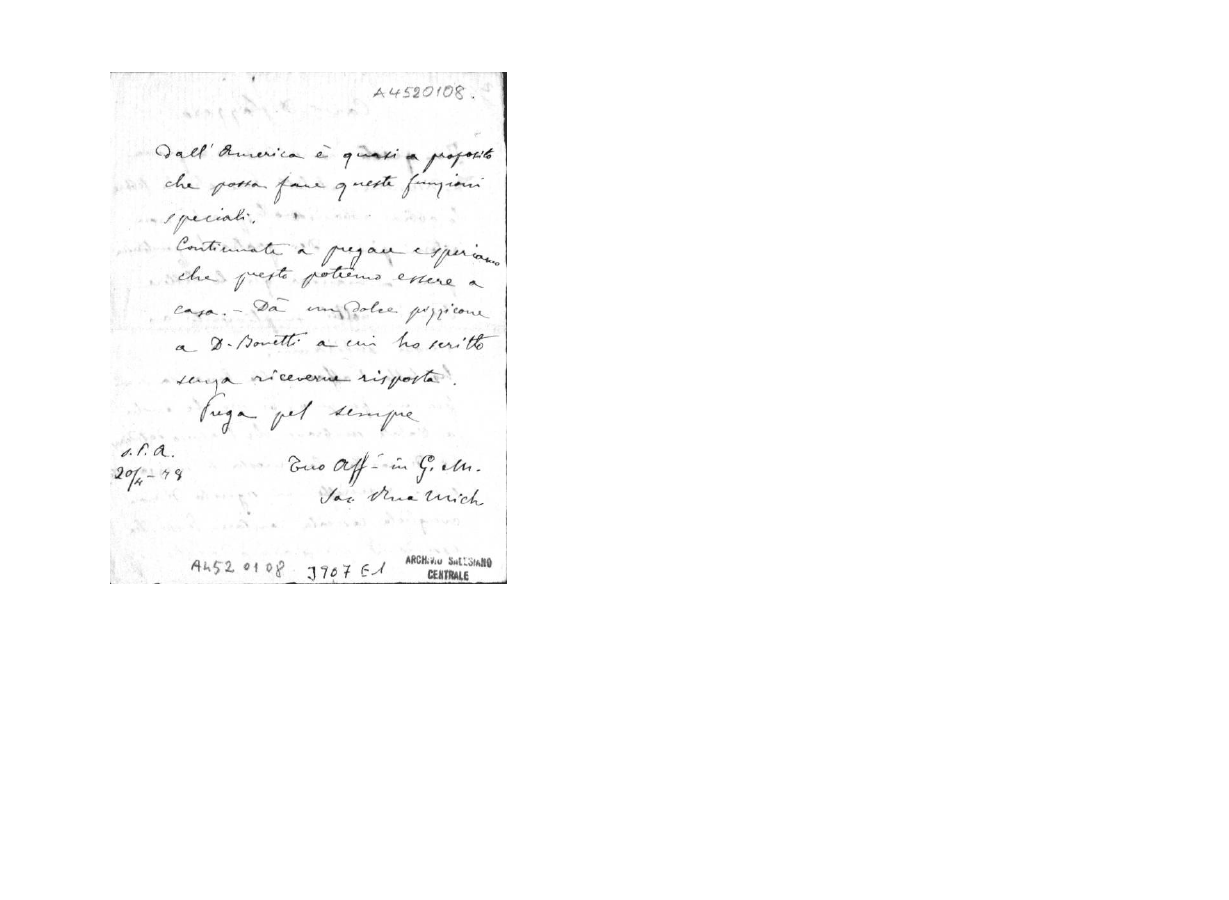 A4520108.
Dall' America è quasi a proposito
che possa fare queste funzioni
speciali.
Continuate a pregare e speriamo
che presto potremo essere a
casa. - Dà un dolce pizzicone
a D. Bonetti a cui ho scritto
senza riceverne risposta.
Prega pel sempre
Tuo Aff. in G. e M.
Sac. Rua Mich
20/4-78
A452 01 08 3907 E1
ARCHIVIO SALESIANO
CENTRALE